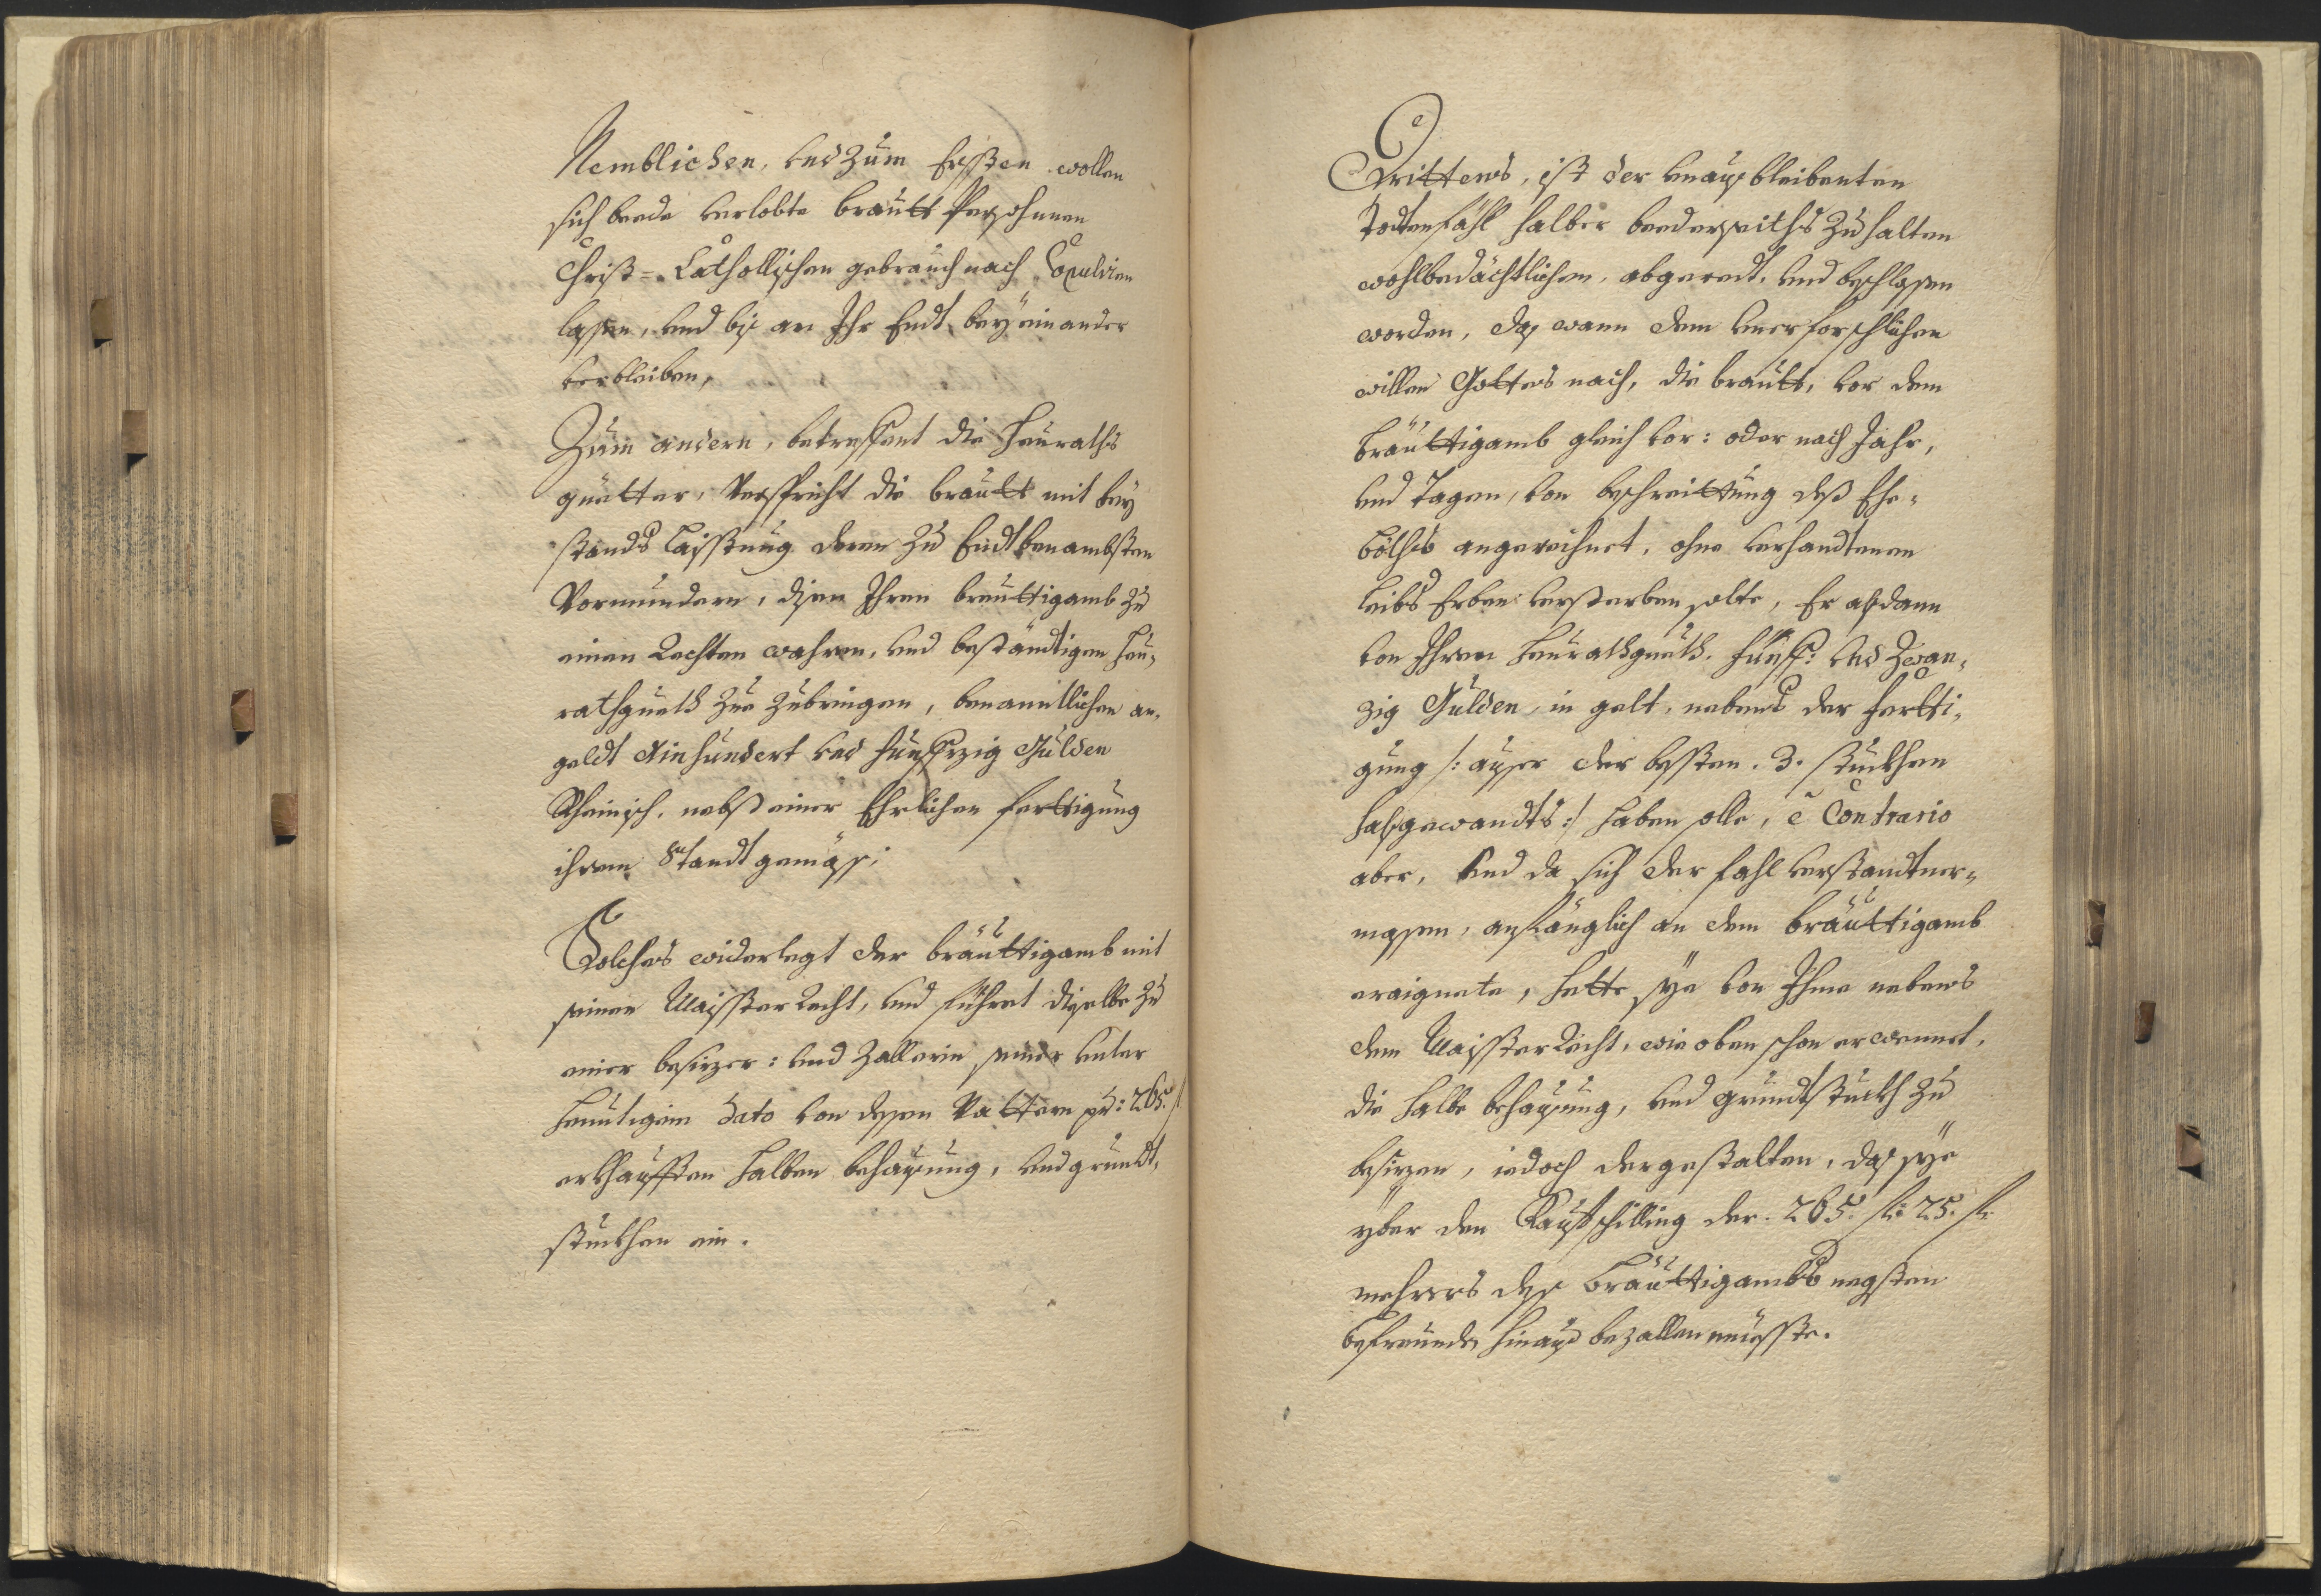 Nemblichen, und Zum Ersten wollen
sich beede verlobte brautt Persohnen
Christ= Catholischen gebrauch nach Copulirn
lassen, und biß an Ihr Endt bey einander
verbleiben,
Zum andern, betreffent die Heuraths
guetter, Verspricht die brautt mit bey
stands Laisstung deren zu Endt benambsten
Vormundern, disen Ihren breuttigamb zu
einen Rechten wahren, und beständtigen Heu=
rathguett zue zubringen, benanntlichen an
geldt Ainhundert und funffzig Gulden
Rheinisch, nebst einer Ehrlichen fertigung
ihrem Standt gemäß;
Solches widerlegt der bräuttigamb mit
seinen Maisster Recht, und führet dieselbe zu
einer besizer: und Zallerin seiner unter
heuntigen dato von dessen Vattern pr: 265 f
erkhaufften halben behausung, und grundt=
stuckhen ein.
Drittens, ist der unausbleibenten
Todtenfähl halber beederseiths zu halten
wohlbedächtlichen, abgeredt, und beschlossen
worden, daß wann dem unerforschlichen
willen Gottes nach, die brautt, vor dem
breuttigamb gleich vor: oder nach Jahr,
und Tagen, von beschreittung deß Ehe=
böths angerechnet, ohne verhandtenen
Leibs Erben versterben solte, Er alßdann
von Ihren Heurathguett, funff: und Zwan=
zig Gulden, in gelt, nebens der fertti=
gung /: ausser der besten 3. stuckhen
halßgewandts :/ haben solle, è Contrario
aber, und da sich der fahl verstandtner=
massen, anfänglich an dem bräuttigamb
eraignete, hette sye von Ihme nebens
dem Maisster Recht, wie oben schon erwennet,
die halbe behausung, und grundtstuckh zu
besizen, iedoch dergestalten, daß sye
yber den Kauffschilling der 265. f: 25. f:
mehrers deß Bräuttigambs negsten
befreunden hinauß bezallen muesste.